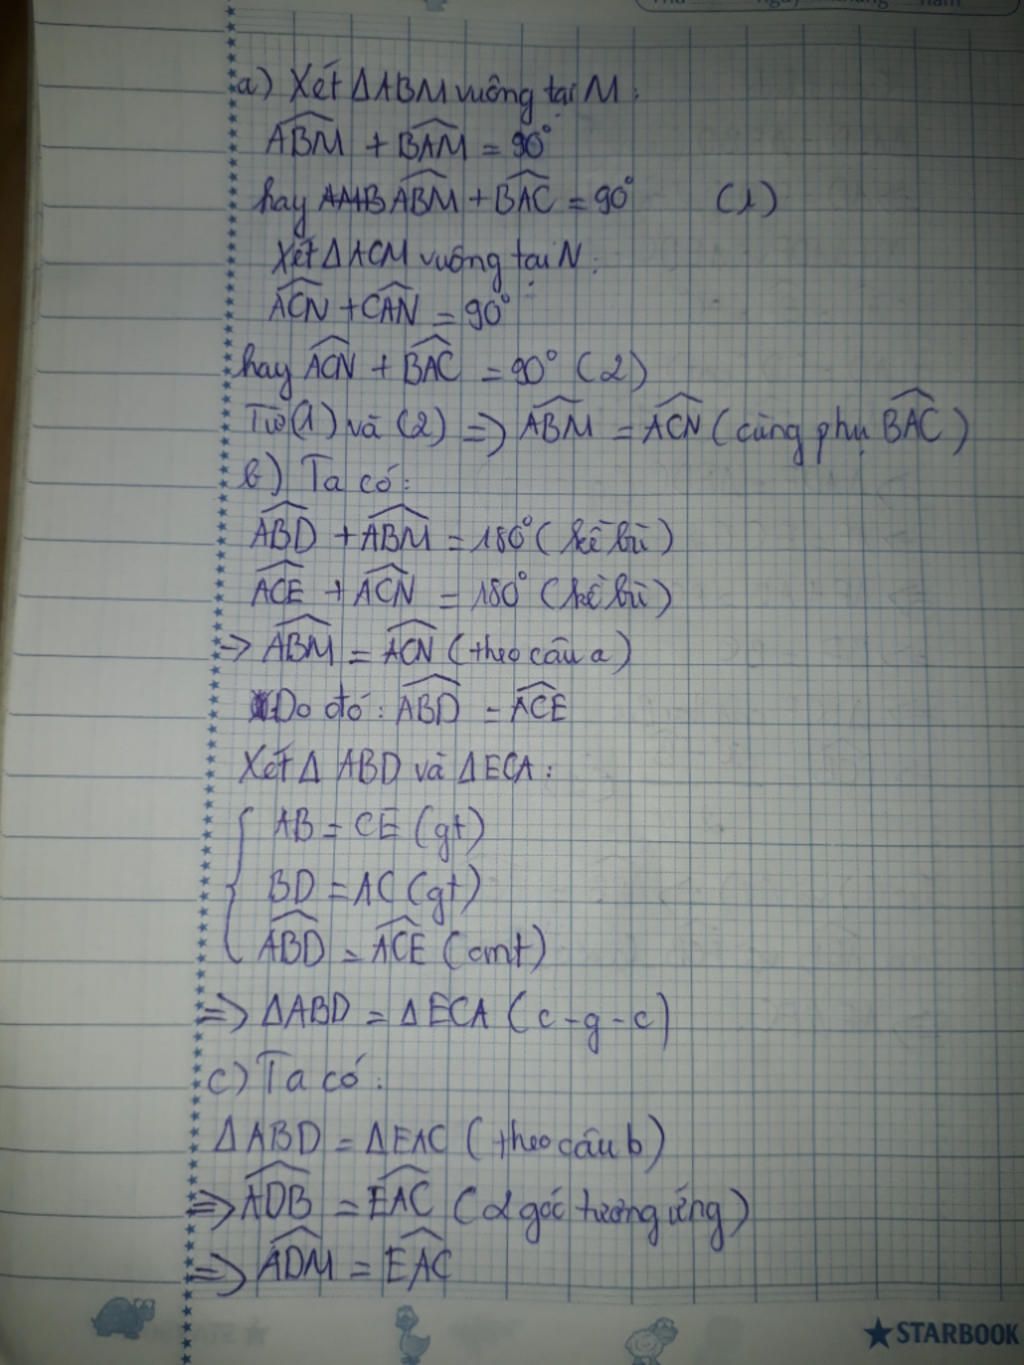 a) Xét ΔABM vuông tại M:
ABM + BAM = 90°
hay ABM + BAC = 90° (1)
Xét ΔACM vuông tại N:
ACN + CAN = 90°
hay ACN + BAC = 90° (2)
Từ (1) và (2) => ABM = ACN (cùng phụ BAC)
b) Ta có:
ABD + ABM = 180° (kề bù)
ACE + ACN = 180° (kề bù)
-> ABM = ACN (theo câu a)
Do đó: ABD = ACE
Xét Δ ABD và ΔECA:
AB = CE (gt)
BD = AC (gt)
ABD = ACE (cmt)
=> ΔABD = ΔECA (c-g-c)
c) Ta có:
ΔABD = ΔEAC (theo câu b)
=> ADB = EAC (2 góc tương ứng)
=> ADM = EAC
★STARBOOK